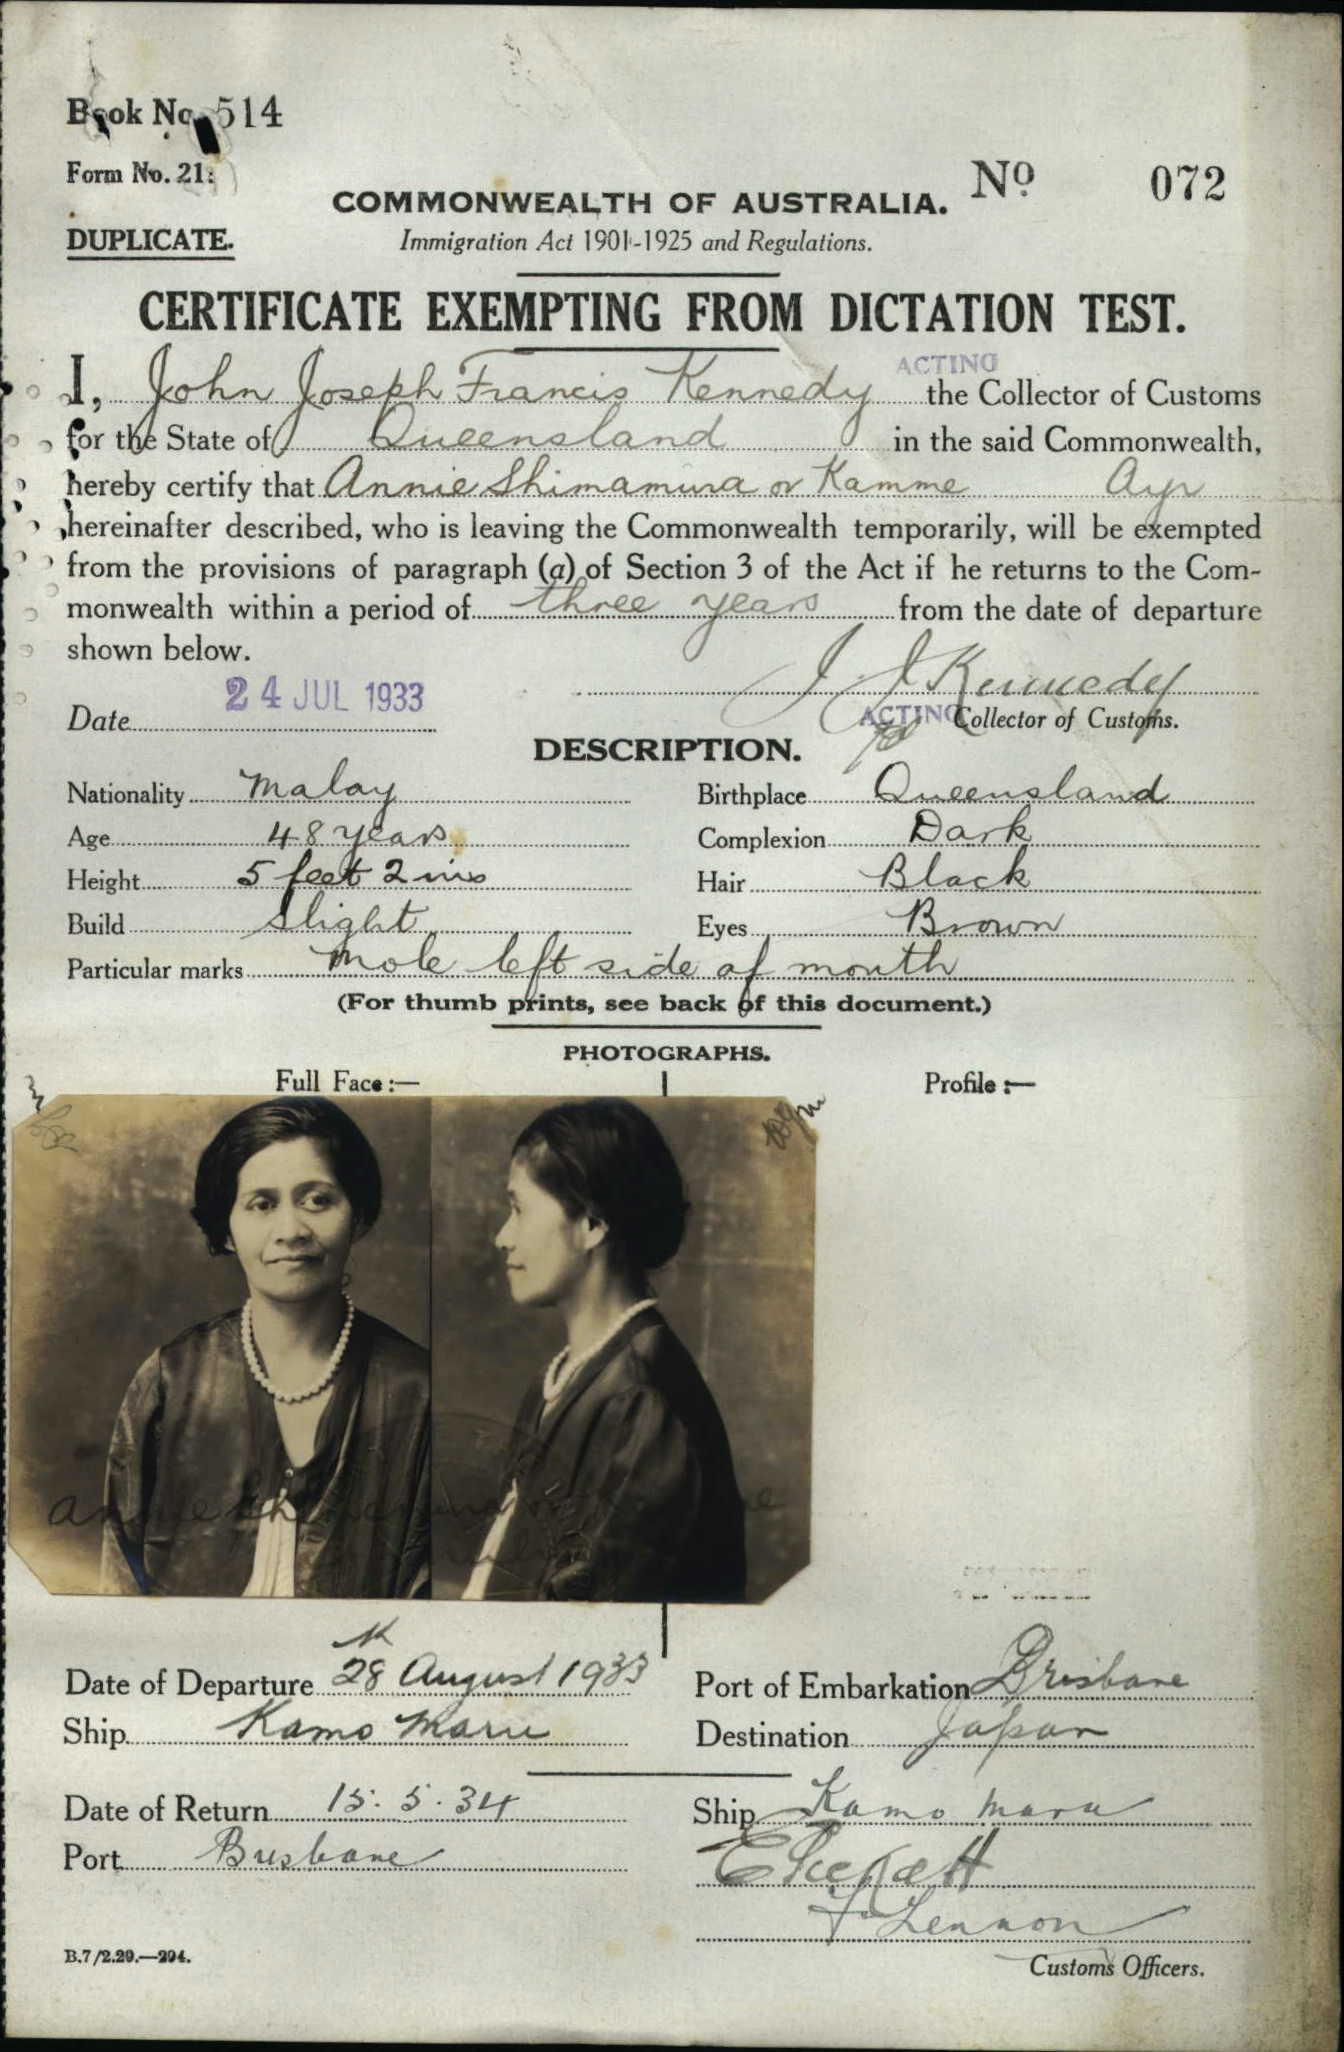 Book No. 514
Form No. 21.
COMMONWEALTH OF AUSTRALIA.
No 072
DUPLICATE.
Immigration Act 1901-1925 and Regulations.
CERTIFICATE EXEMPTING FROM DICTATION TEST.
ACTING
I, John Joseph Francis Kennedy the Collector of Customs
for the State of Queensland in the said Commonwealth,
hereby certify that Annie Shimamura or Kamme Ayr
hereinafter described, who is leaving the Commonwealth temporarily, will be exempted
from the provisions of paragraph (a) of Section 3 of the Act if he returns to the Com-
monwealth within a period of three years from the date of departure
shown below.
J J Kennedy
Date 24 JUL 1933
ACTING Collector of Customs.
DESCRIPTION.
Nationality Malay Birthplace Queensland
Age 48 years Complexion Dark
Height 5 feet 2 ins Hair Black
Build Slight Eyes Brown
Particular marks Mole left side of mouth
(For thumb prints, see back of this document.)
PHOTOGRAPHS.
Full Face:— Profile:—
Annie Shimamura or
Date of Departure 28 August 1933 Port of Embarkation Brisbane
Ship Kamo Maru Destination Japan
Date of Return 15.5.34 Ship Kamo Maru
Port Brisbane
F Lennon
B.7/2.29.—294.
Customs Officers.